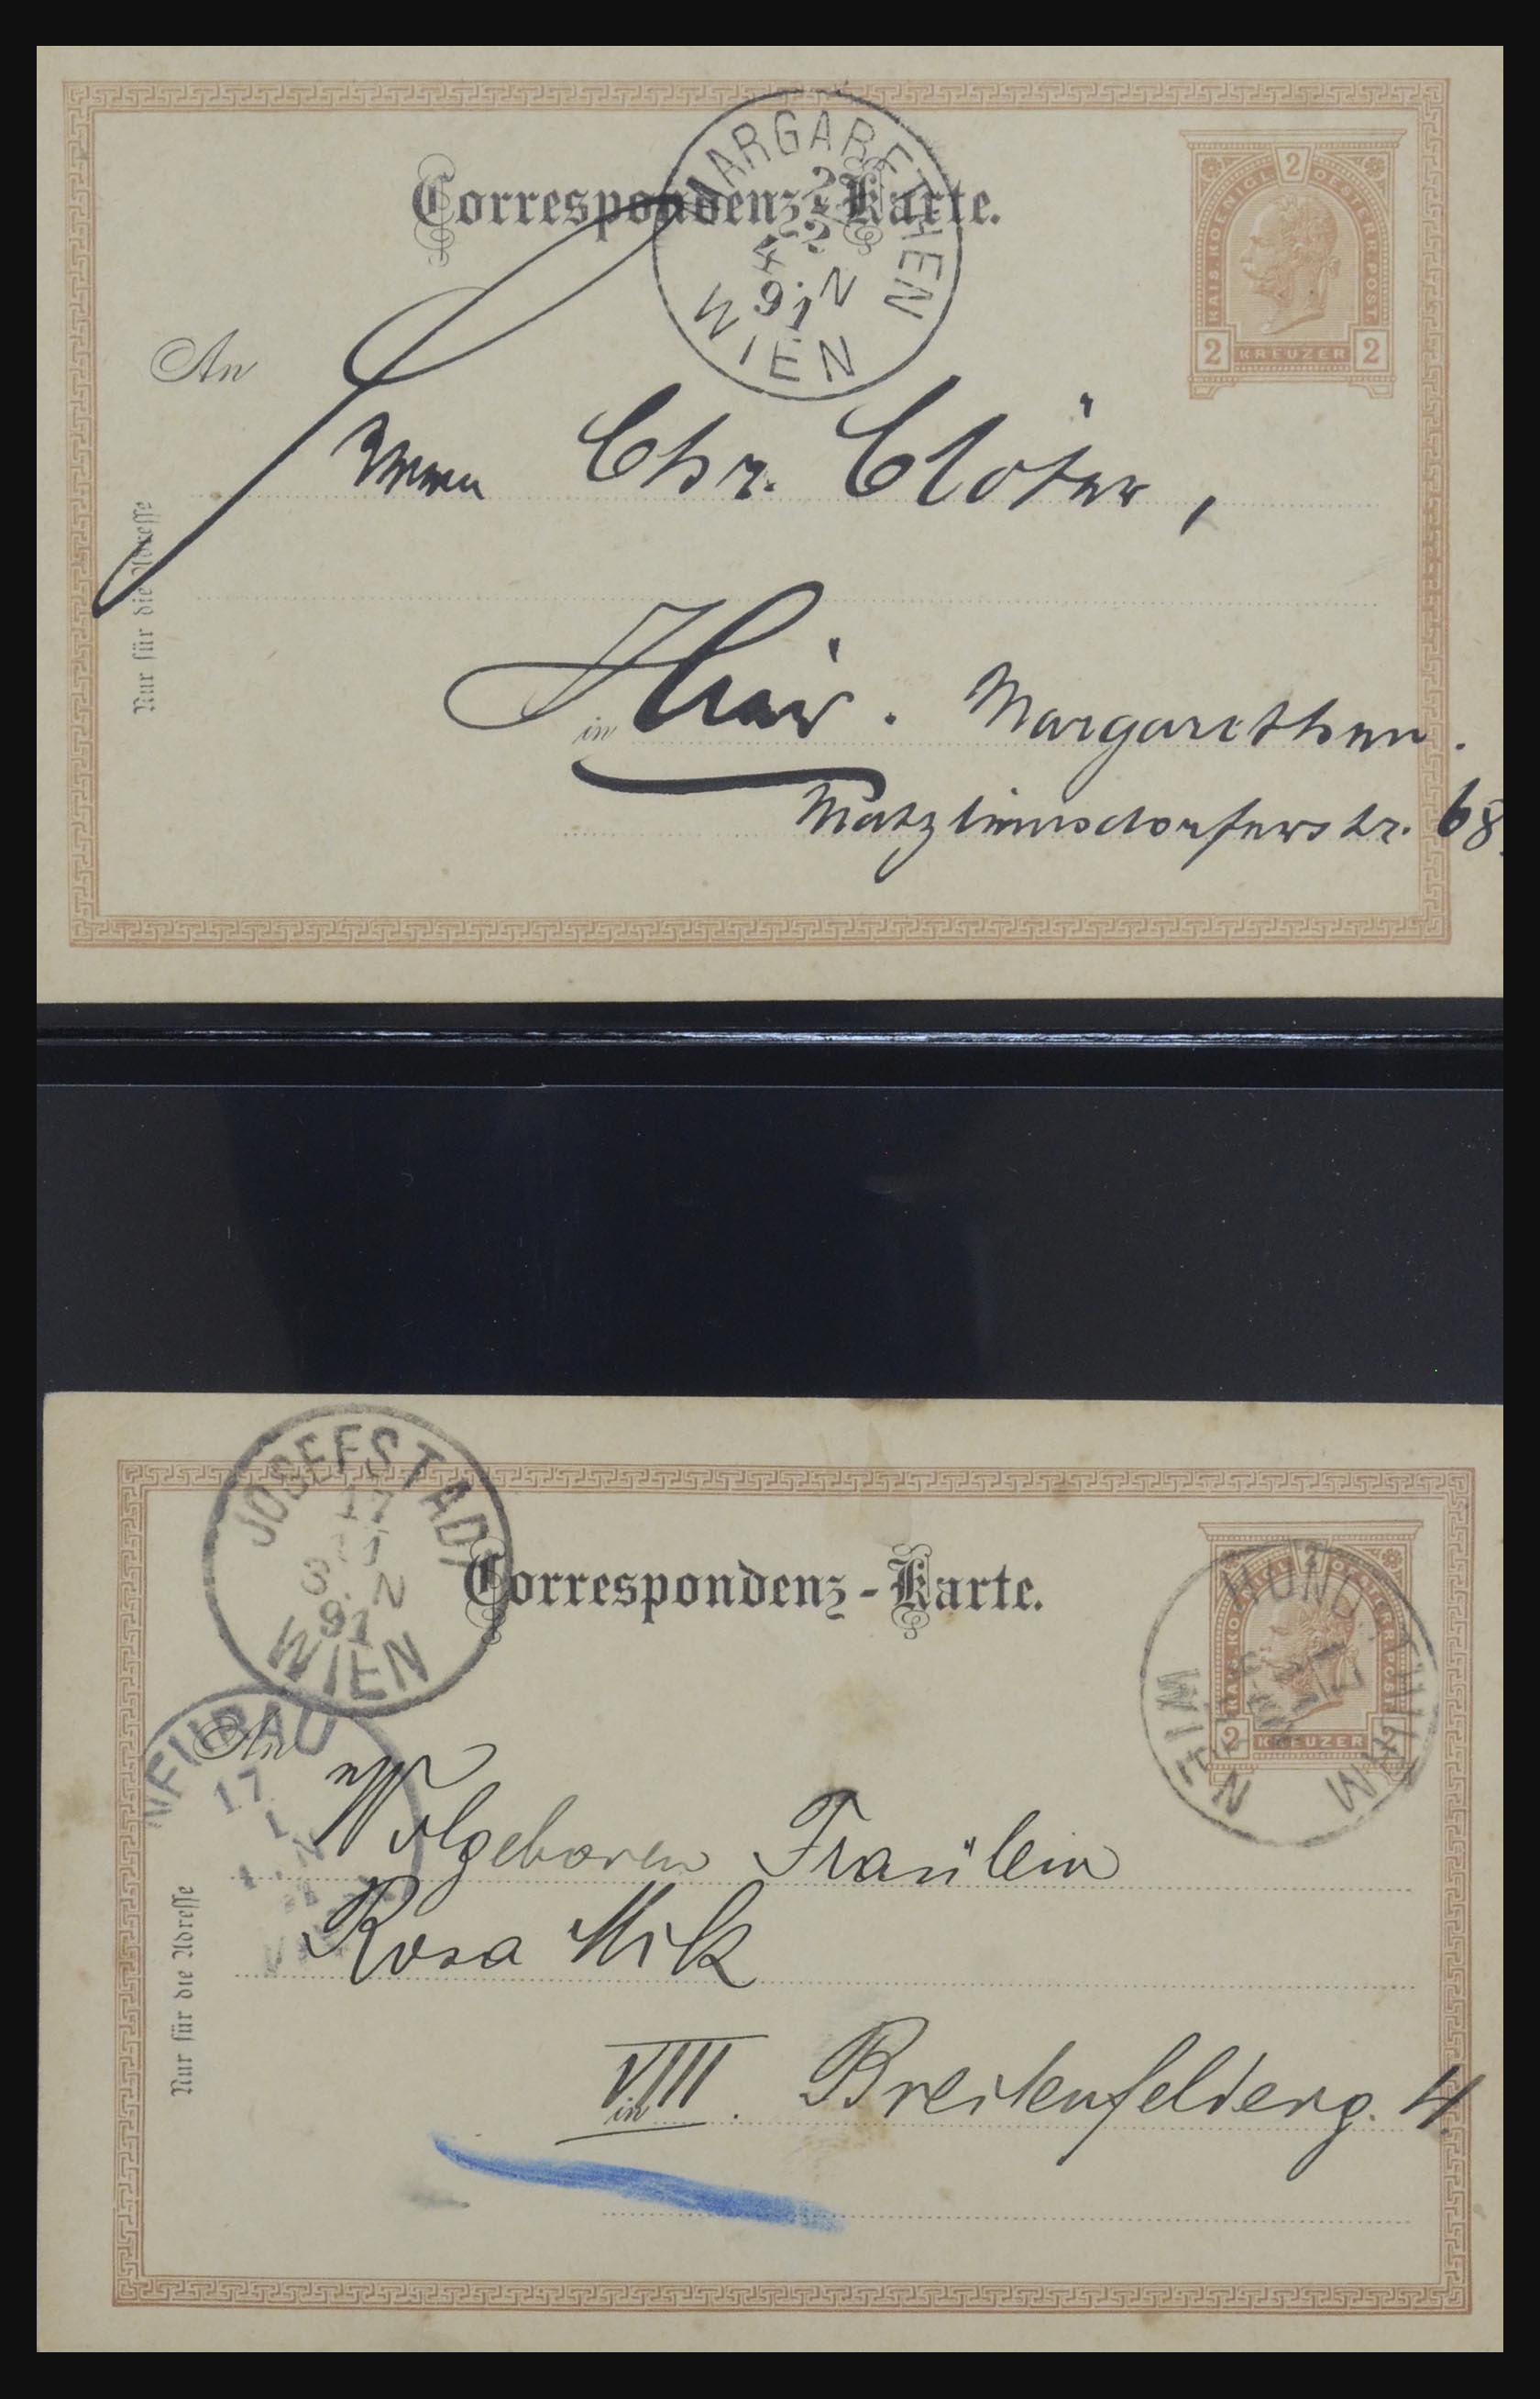 MARGARETHEN
WIEN
2
2
4.N
91
Correspondenz-Karte.
2
KAIS. KOENIGL. OESTERR. POST
2 KREUZER 2
An
Herrn Chr. Clöter,
Nur für die Adresse
in Wien. Margarethen.
Matzleinsdorferstr. 68.
JOSEFSTADT
17
1
8.N
91
WIEN
Correspondenz-Karte.
2
KAIS. KOENIGL. OESTERR. POST
2 KREUZER 2
HUNDSTHURM
WIEN
NEUBAU
17
1
An
Wolgeboren Fraülein
Rosa Mik
Nur für die Adresse
in VIII. Breitenfelderg. 4.